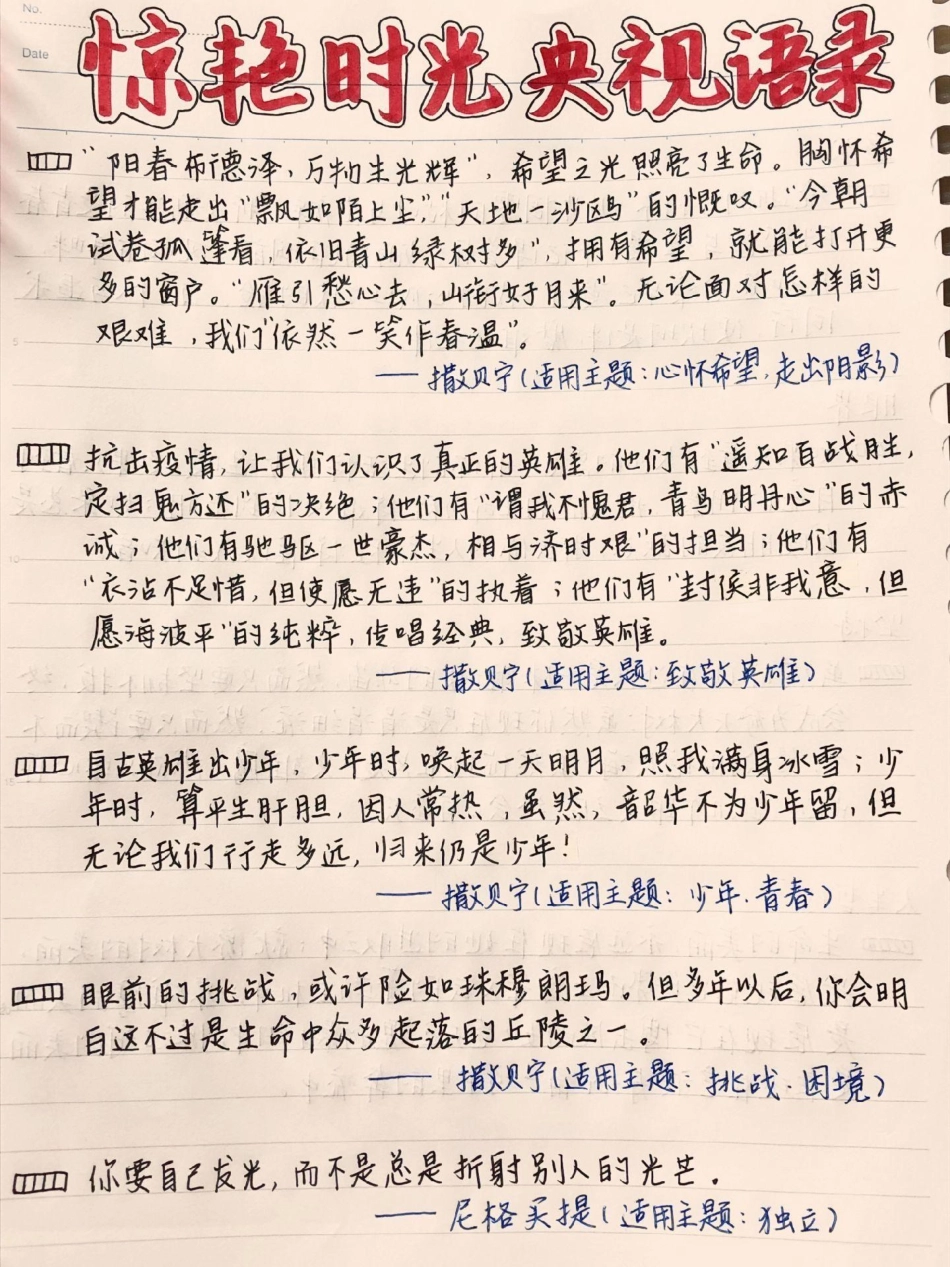 No.
Date
惊艳时光央视语录
"阳春布德泽,万物生光辉",希望之光照亮了生命。胸怀希
望才能走出"飘如陌上尘","天地一沙鸥"的慨叹。"今朝
试卷孤篷看,依旧青山绿树多",拥有希望,就能打开更
多的窗户。"雁引愁心去,山衔好月来"。无论面对怎样的
艰难,我们"依然一笑作春温"。
——撒贝宁(适用主题:心怀希望,走出阴影)
抗击疫情,让我们认识了真正的英雄。他们有"遥知百战胜,
定扫鬼方还"的决绝;他们有"谓我不愧君,青鸟明丹心"的赤
诚;他们有驰驱一世豪杰,相与济时艰"的担当;他们有
"衣沾不足惜,但使愿无违"的执着;他们有"封侯非我意,但
愿海波平"的纯粹,传唱经典,致敬英雄。
——撒贝宁(适用主题:致敬英雄)
自古英雄出少年,少年时,唤起一天明月,照我满身冰雪;少
年时,算平生肝胆,因人常热,虽然,韶华不为少年留,但
无论我们行走多远,归来仍是少年!
——撒贝宁(适用主题:少年·青春)
眼前的挑战,或许险如珠穆朗玛。但多年以后,你会明
白这不过是生命中众多起落的丘陵之一。
——撒贝宁(适用主题:挑战·困境)
你要自己发光,而不是总是折射别人的光芒。
——尼格买提(适用主题:独立)